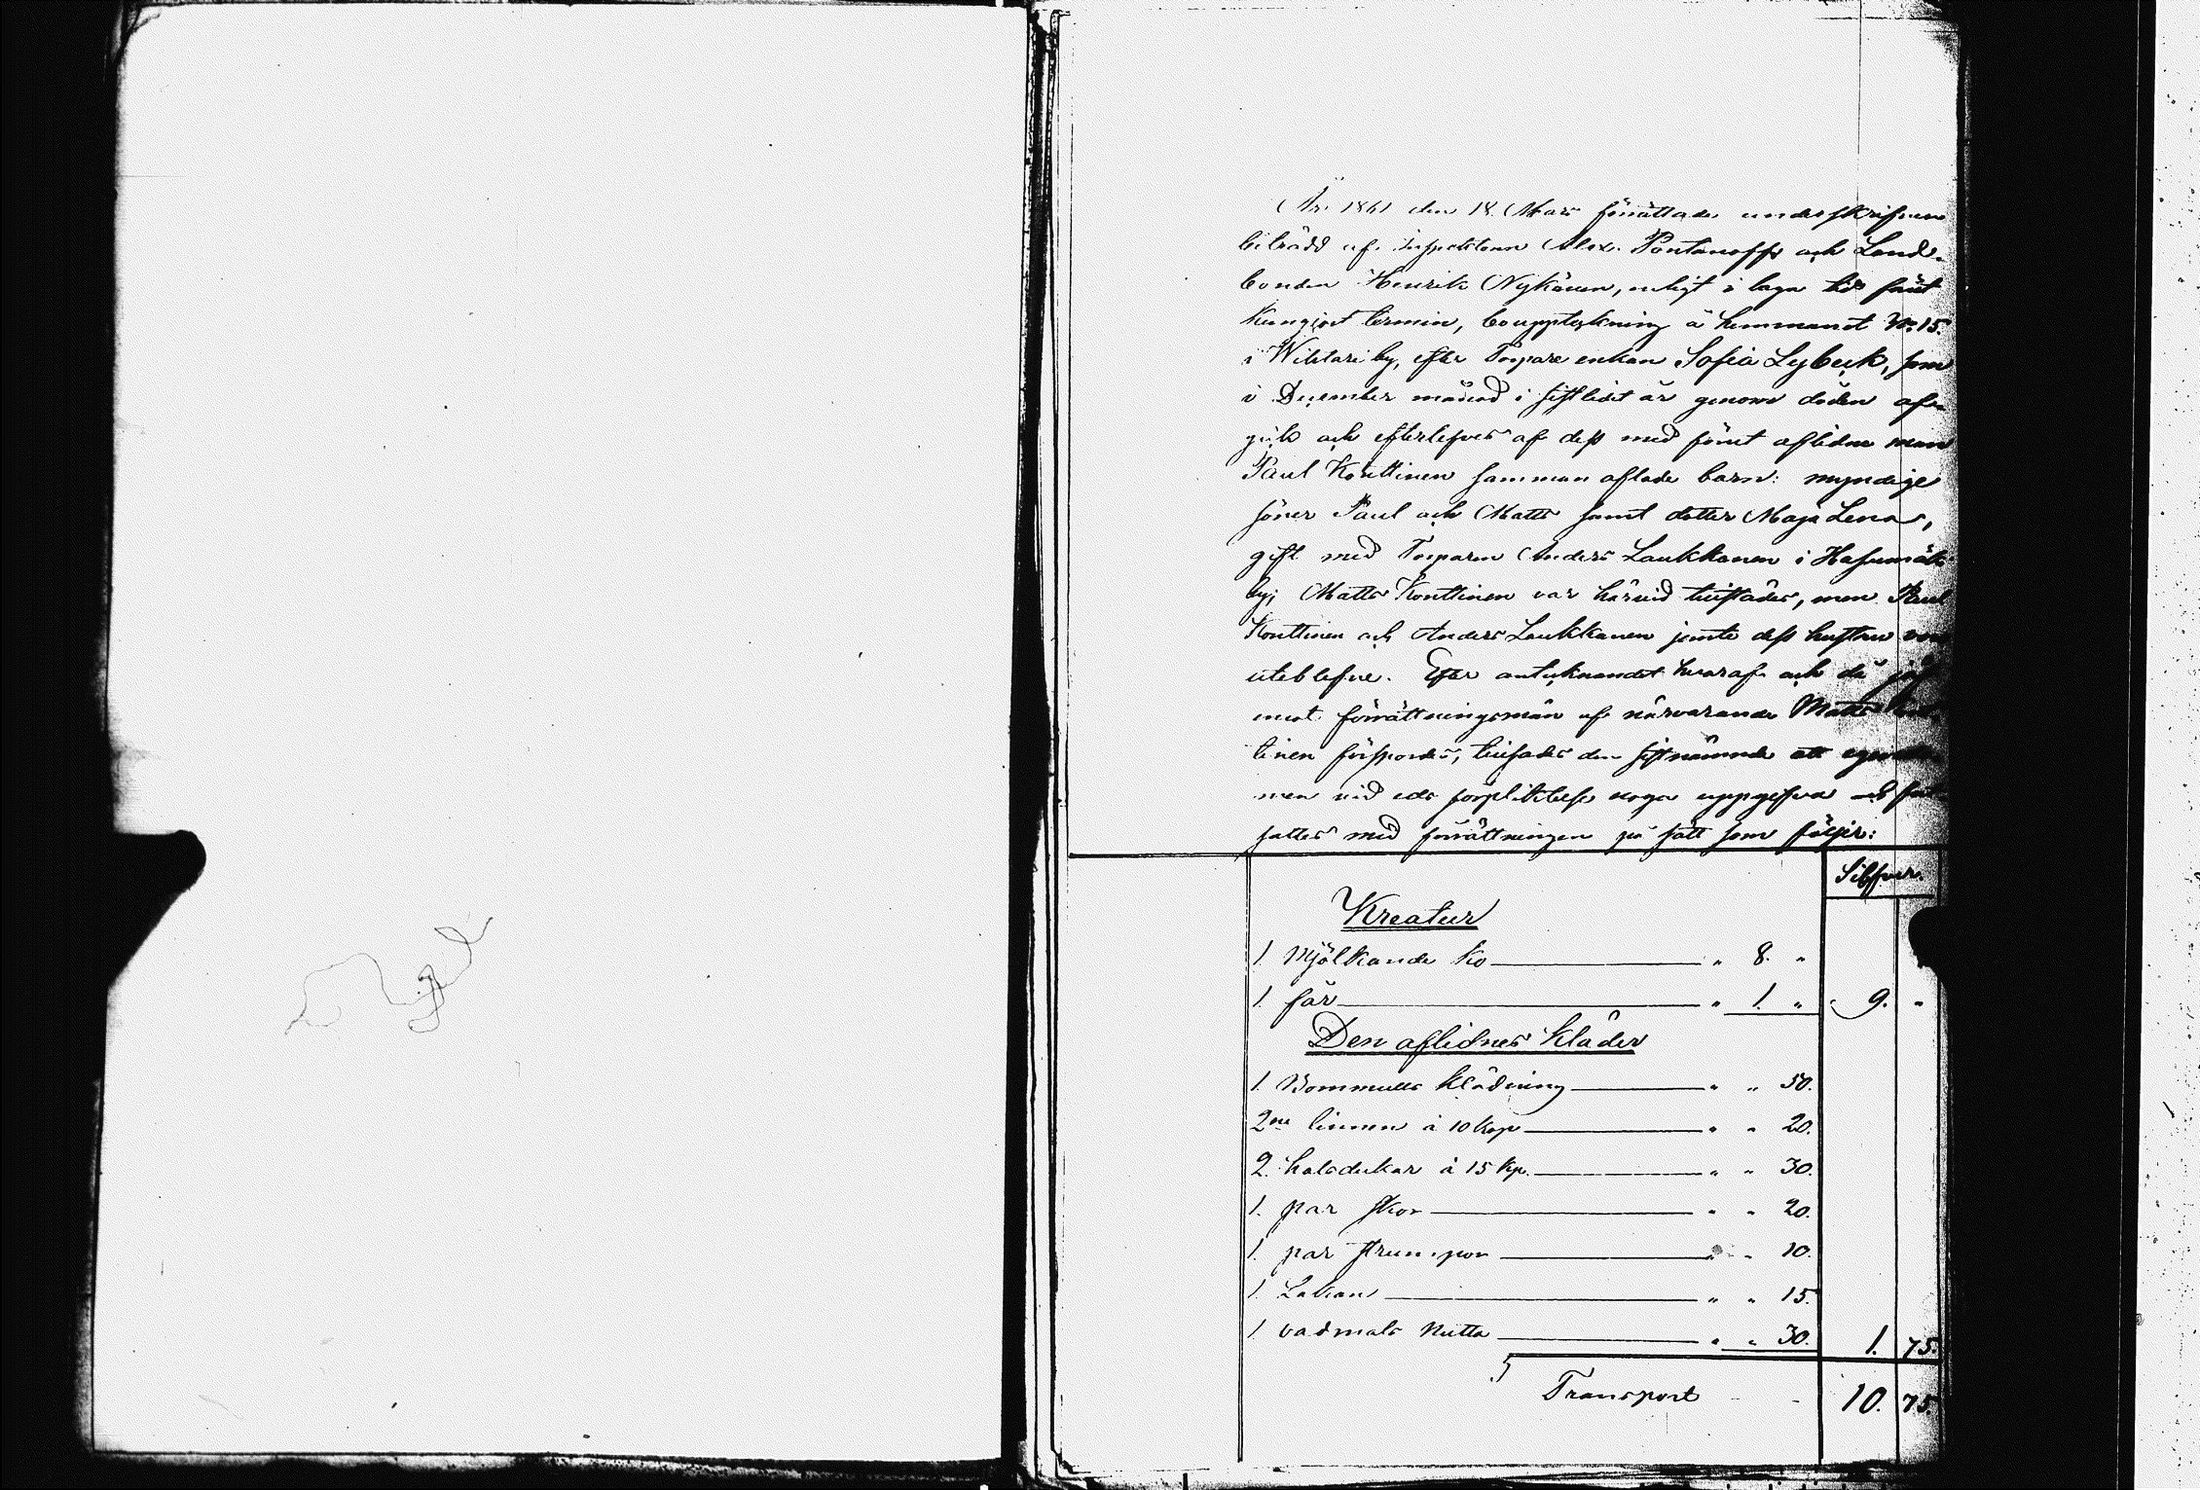 År 1861 den 18 Mars förrättade underskrifven
biträdd af Inspektoren Alex. Pontanoffs och Land-
bonden Henrik Nykänen, enligt i laga tid förut
kungjort termin, bouppteckning å hemmanet No 15.
i Wiitlari by, efter Torpare enkan Sofia Lybeck, som
i December månad i sistledet år genom döden af-
gick och efterlefves af dess med förut aflidne man
Paul Konttinen samman aflade barn: myndige
söner Paul och Matts samt dotter Maja Lena,
gift med Torparen Anders Laukkanen i
by; Matts Konttinen var härvid tillstädes, men Paul
Konttinen och Anders Laukkanen jemte dess hustru voro
uteblefne. Efter antecknandet hvaraf och då jäf
emot förrättningsmän af närvarande Matts Kont-
tinen förspordes, tillsades den sistnämnde att egendom-
men vid eds förpliktelse noga uppgifva och fort-
sattes med förrättningen på sätt som följer:
Silfver.
Kreatur
1. Mjölkande Ko " 8. "
1. får " 1. " 9. "
Den aflidnes Kläder
1. Bommulls klädning " " 50.
2ne linnen à 10 kop " " 20.
2. halsdukar à 15 kp. " " 30.
1. par skor " " 20.
1. par strumpor " " 10.
1. Lakan " " 15.
1. vadmals " " 30. 1. 75.
Transport 10. 75.